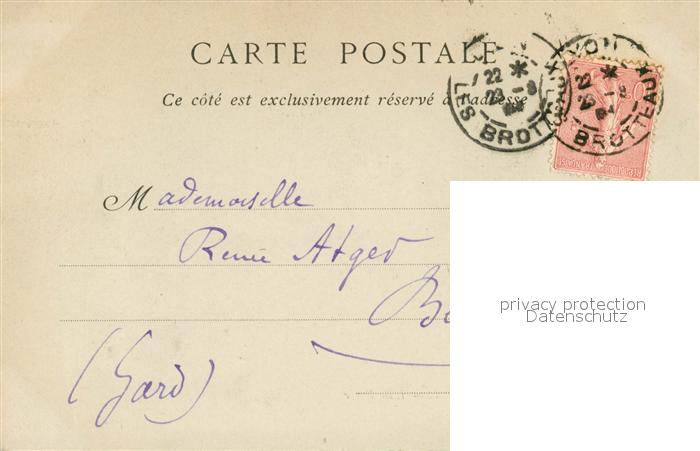 CARTE POSTALE
Ce côté est exclusivement réservé à l'adresse
LYON
22 *
23 -8
LES BROTTEAUX
LYON
22 *
LES BROTTEAUX
Mademoiselle
Renée Atger
(Gard)
privacy protection
Datenschutz